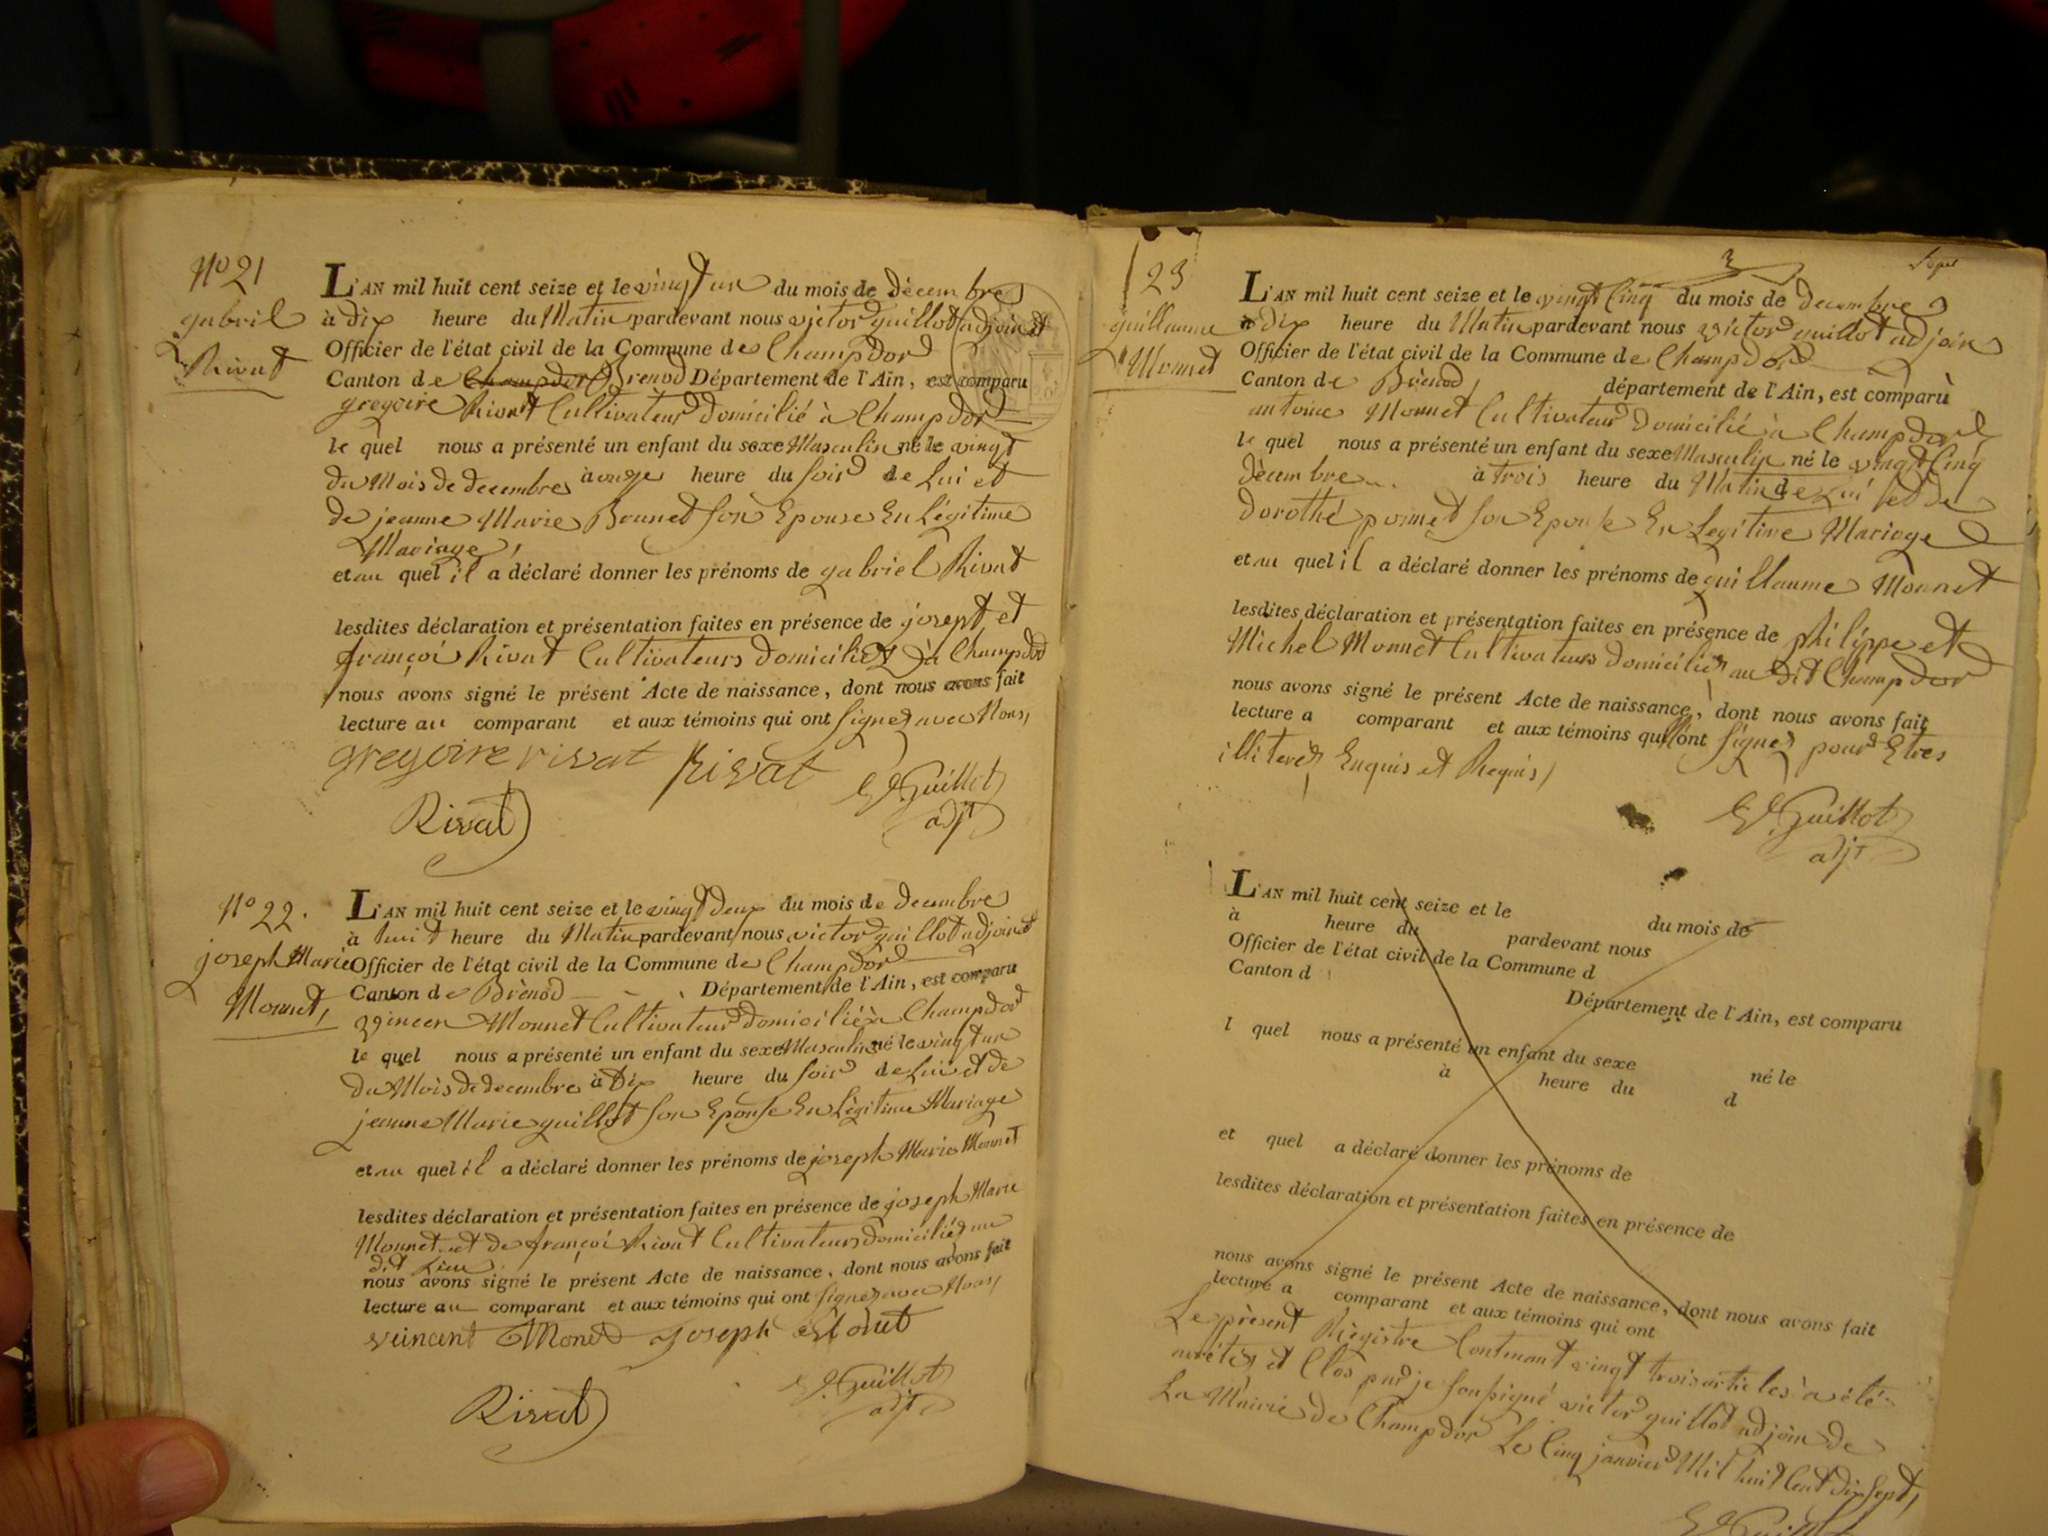 N° 21
gabriel
Rivat
L'AN mil huit cent seize et le vingt un du mois de décembre
à dix heure du Matin pardevant nous victor guillot adjoint
Officier de l'état civil de la Commune de Champdor
Canton de Champdor Brenod Département de l'Ain, est comparu
gregoire Rivat Cultivateur domicilié à Champdor
le quel nous a présenté un enfant du sexe Masculin né le vingt
du Mois de decembre à onze heure du soir de Lui et
de jeanne Marie Bonnet son Epouse En Légitime
Mariage,
et au quel il a déclaré donner les prénoms de gabriel Rivat
lesdites déclaration et présentation faites en présence de josept et
françoi Rivat Cultivateurs domiciliés à Champdor
nous avons signé le présent Acte de naissance, dont nous avons fait
lecture au comparant et aux témoins qui ont signés avec Nous,
gregoire rivat Rivat Guillot
Rivat adjt
N° 22.
joseph Marie
Monnet,
L'AN mil huit cent seize et le vingt deux du mois de decembre
à huit heure du Matin pardevant nous victor guillot adjoint
Officier de l'état civil de la Commune de Champdor
Canton de Brènod Département de l'Ain, est comparu
vincen Monnet Cultivateur domicilié à Champdor
le quel nous a présenté un enfant du sexe Masculin né le vingt un
du Mois de decembre à dix heure du soir de Lui et de
jeanne Marie guillot son Epouse En Légitime Mariage
et au quel il a déclaré donner les prénoms de joseph Marie Monnet
lesdites déclaration et présentation faites en présence de joseph Marie
Monnet et de françoi Rivat Cultivateurs domiciliés au
dit Lieu
nous avons signé le présent Acte de naissance, dont nous avons fait
lecture au comparant et aux témoins qui ont signés avec Nous,
veincent Monet joseph
Guillot
Rivat adjt
23
guillaume
Monnet
L'AN mil huit cent seize et le vingt Cinq du mois de decembre
à dix heure du Matin pardevant nous victor guillot adjoin
Officier de l'état civil de la Commune de Champdor
Canton de Brènod, département de l'Ain, est comparù
antoine Monnet Cultivateur Domicilié à Champdor
le quel nous a présenté un enfant du sexe Masculin né le vingt Cinq
décembre à trois heure du Matin de Lui et de
dorothé ponnet son Epouse En Legitime Mariage
et au quel il a déclaré donner les prénoms de guillaume Monnet
lesdites déclaration et présentation faites en présence de philippe et
Michel Monnet Cultivateurs domiciliés au dit Champdor
nous avons signé le présent Acte de naissance, dont nous avons fait
lecture a comparant et aux témoins qui ont signés pour Etres
illiterés Enquis et Requis,
Guillot
adjt
L'AN mil huit cent seize et le du mois de
à heure du pardevant nous
Officier de l'état civil de la Commune d
Canton d Département de l'Ain, est comparu
l quel nous a présenté un enfant du sexe né le
à heure du d
et quel a déclaré donner les prénoms de
lesdites déclaration et présentation faites en présence de
nous avons signé le présent Acte de naissance, dont nous avons fait
lecture a comparant et aux témoins qui ont
Le prèsent Règistre Contenant vingt trois articles à été
arrêtés et Clos par je soussigné victor guillot adjoin de
La Mairie de Champdor Le Cinq janvier Mil huit Cent dix sept,